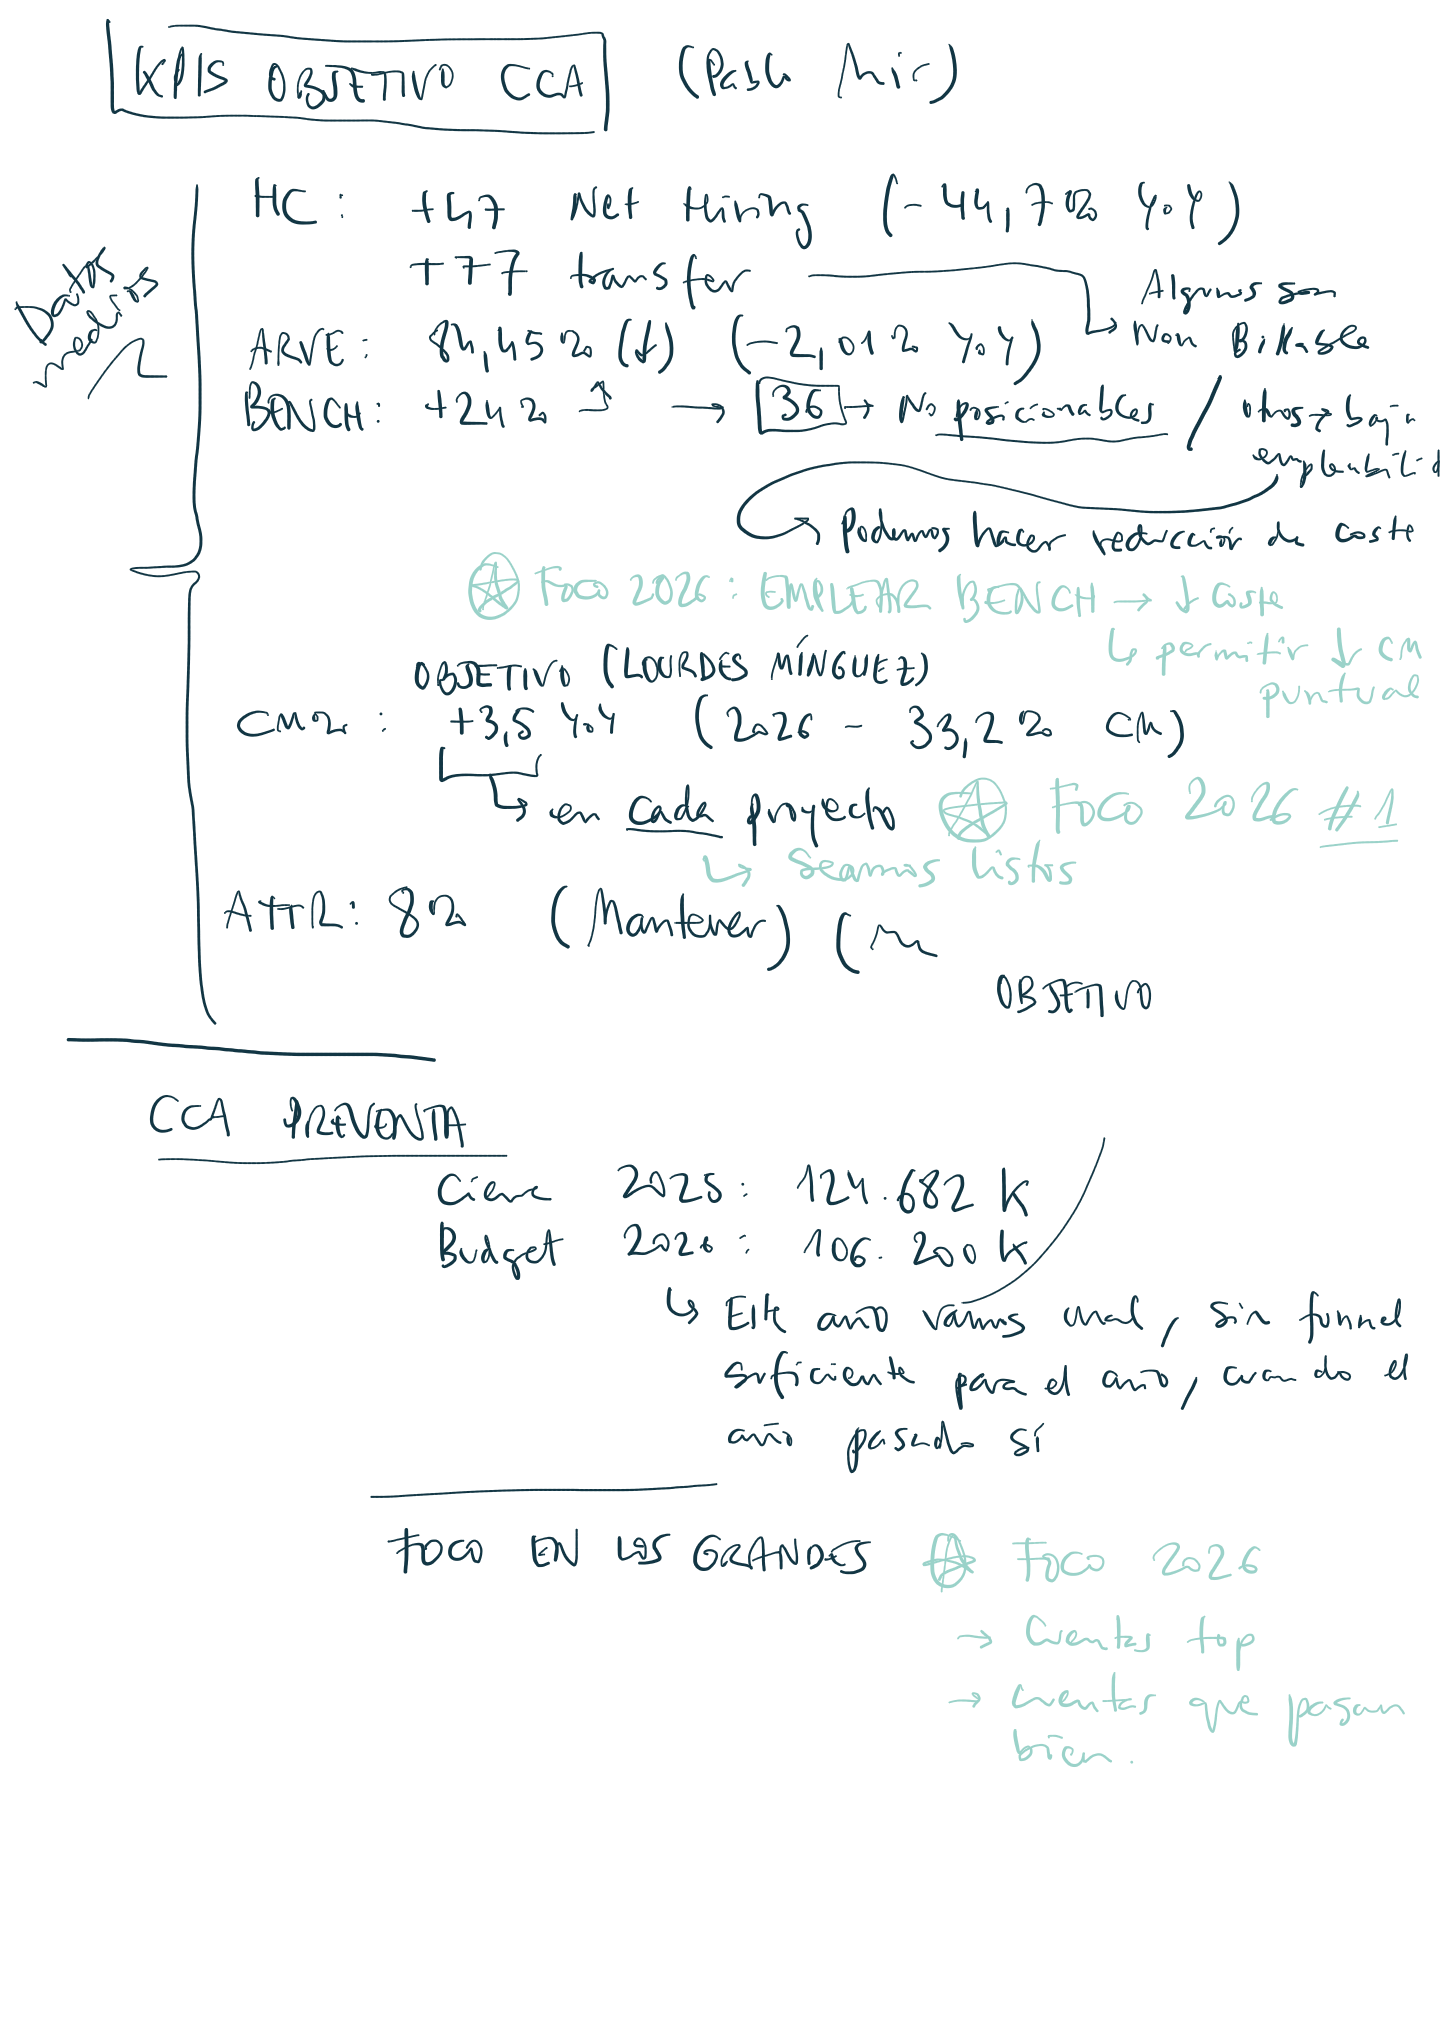 KPIS OBJETIVO CCA (Pablo Mir)
Datos medios
HC: +47 Net Hiring (-44,7% YoY)
+77 transfer → Algunos son Non Billable
ARVE: 84,45% (↓) (-2,01% YoY)
BENCH: +24% ↑ → 36 → No posicionables / otros → baja empleabilid
↳ Podemos hacer reducción de coste
Foco 2026: EMPLEAR BENCH → ↓ Coste
↳ permitir ↓ CM puntual
OBJETIVO (LOURDES MÍNGUEZ)
CM%: +3,5 YoY (2026 - 33,2% CM)
↳ en cada proyecto Foco 2026 #1
↳ Seamos listos
ATTR: 8% (Mantener) (
OBJETIVO
CCA PREVENTA
Cierre 2025: 124.682 K
Budget 2026: 106.200 K
↳ Este año vamos mal, sin funnel
suficiente para el año, cuando el
año pasado sí
FOCO EN LOS GRANDES Foco 2026
→ Cuentas top
→ Cuentas que pagan
bien.